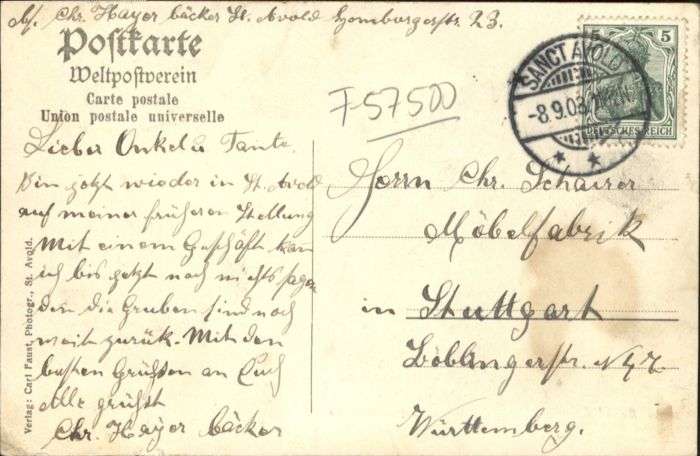 Abs. Chr. Hayer bäcker St. Avold Homburgerstr. 23.
Postkarte
Weltpostverein
Carte postale
Union postale universelle
F-57500
5 5
SANCT AVOLD
-8.9.08
DEUTSCHES REICH
Lieber Onkel u Tante.
Bin jetzt wieder in St. Avold
auf meiner früheren Stellung
Mit einem Geschäft kan
ich bis jetzt noch nichts sagen
den die Gruben sind noch
weit zurük. Mit den
besten Grüßen an Euch
Alle grüsst
Chr. Hayer bäcker
Herrn Chr. Schairer
Möbelfabrik
in Stuttgart
Böblingerstr. N
Württemberg.
Verlag: Carl Faust, Photogr., St. Avold.